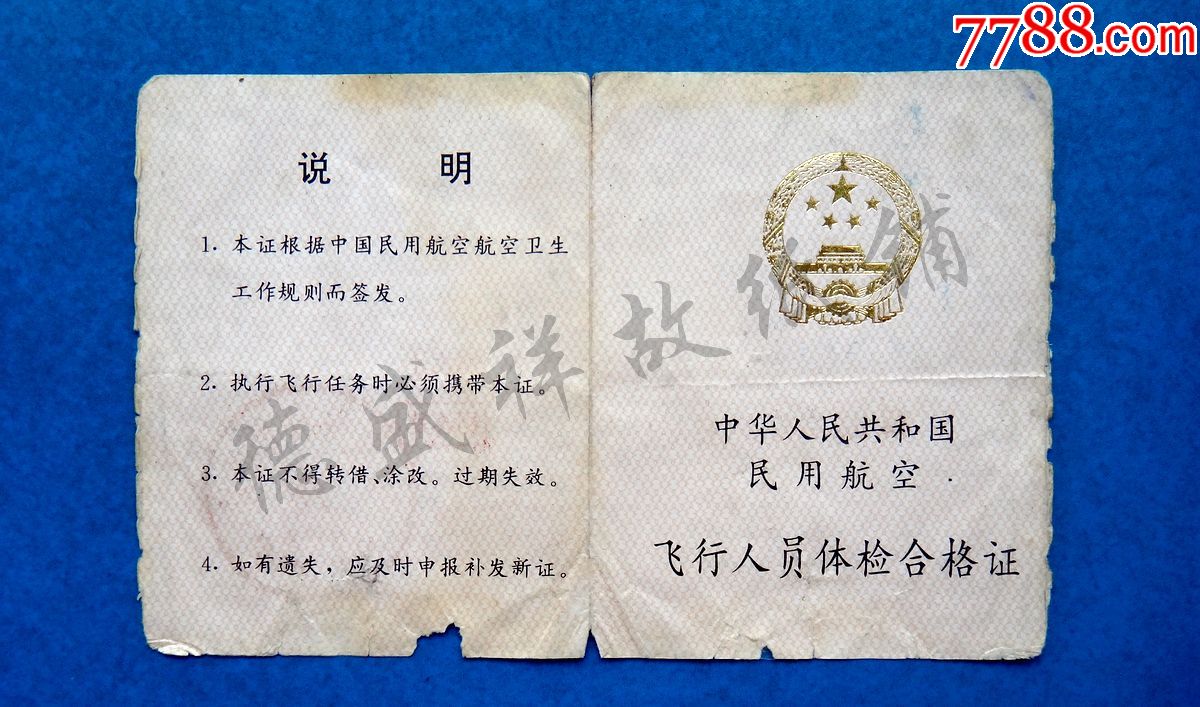 7788.com
说 明
1. 本证根据中国民用航空航空卫生
工作规则而签发。
2. 执行飞行任务时必须携带本证。
3. 本证不得转借、涂改。过期失效。
4. 如有遗失，应及时申报补发新证。
中华人民共和国
民用航空
飞行人员体检合格证
德盛祥故纸铺